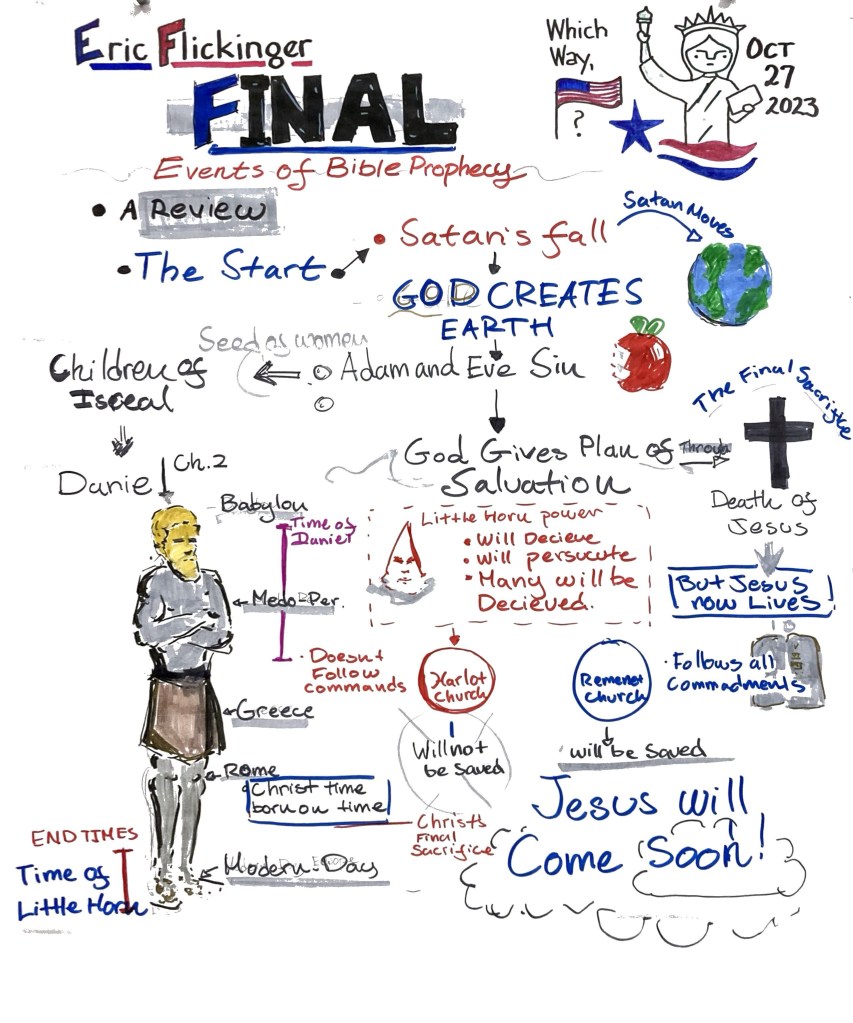 Eric Flickinger
FINAL
Events of Bible Prophecy
Which
Way,
?
OCT
27
2023
• A Review
• The Start
• Satan's fall
Satan Moves
GOD CREATES
EARTH
Seed of women
Adam and Eve Sin
Children of
Isreal
The Final Sacrifice
God Gives Plan of
Salvation
Through
Death of
Jesus
But Jesus
now Lives!
Daniel
Ch.2
Babylon
Time of
Daniel
Medo-Per.
Greece
Rome
Christ time
born on time
Christ's
Final
Sacrifice
Modern-Day
END TIMES
Time of
Little Horn
Little Horn power
• Will Decieve
• Will persucute
• Many will be
Decieved.
• Doesn't
Follow
commands
Harlot
church
Will not
be saved
Remenet
church
• Follows all
Commadments
will be saved
Jesus will
Come Soon!